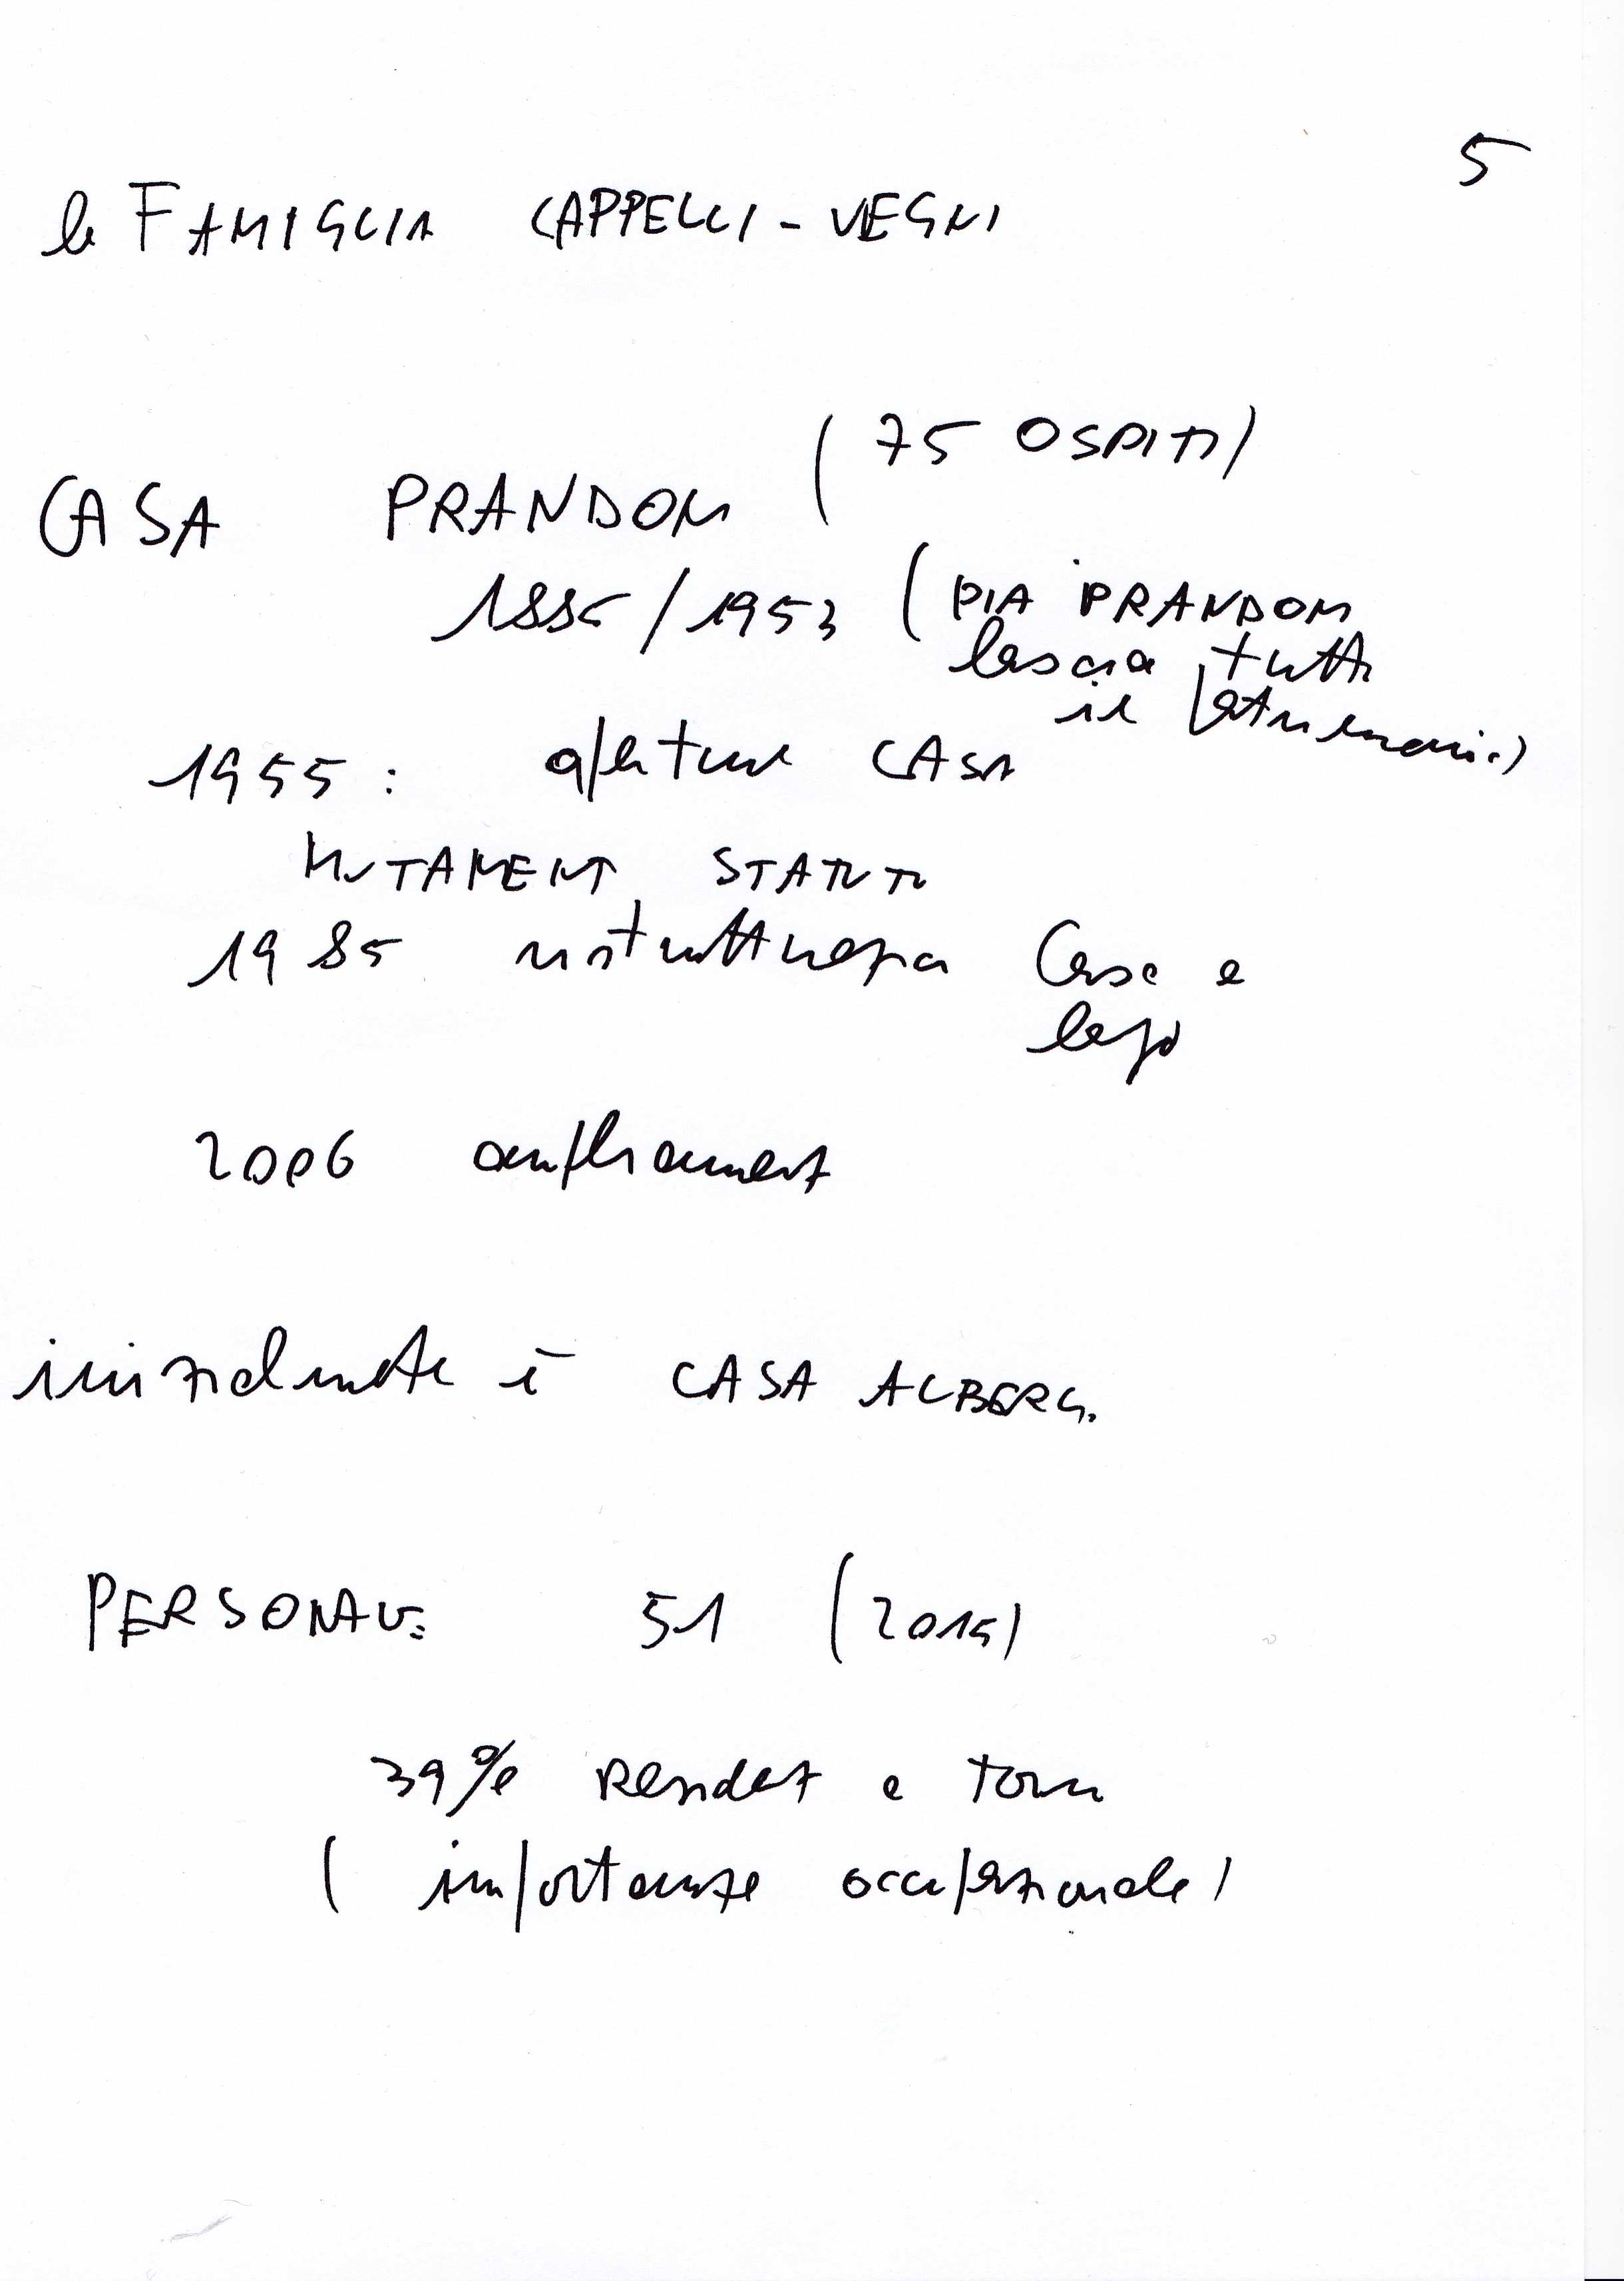 5
la FAMIGLIA CAPPELLI - VEGNI
(75 OSPITI)
CASA PRANDONI
/1953 (PIA PRANDONI
lascia tutto
il patrimonio)
1955: apertura CASA
MUTAMENTI STATUTO
1985 ristrutturazione Casa e
2006 ampliamento
inizialmente è CASA ALBERG.
PERSONALE: 51 (2015)
39% Residenti a
(importanza occupazionale)